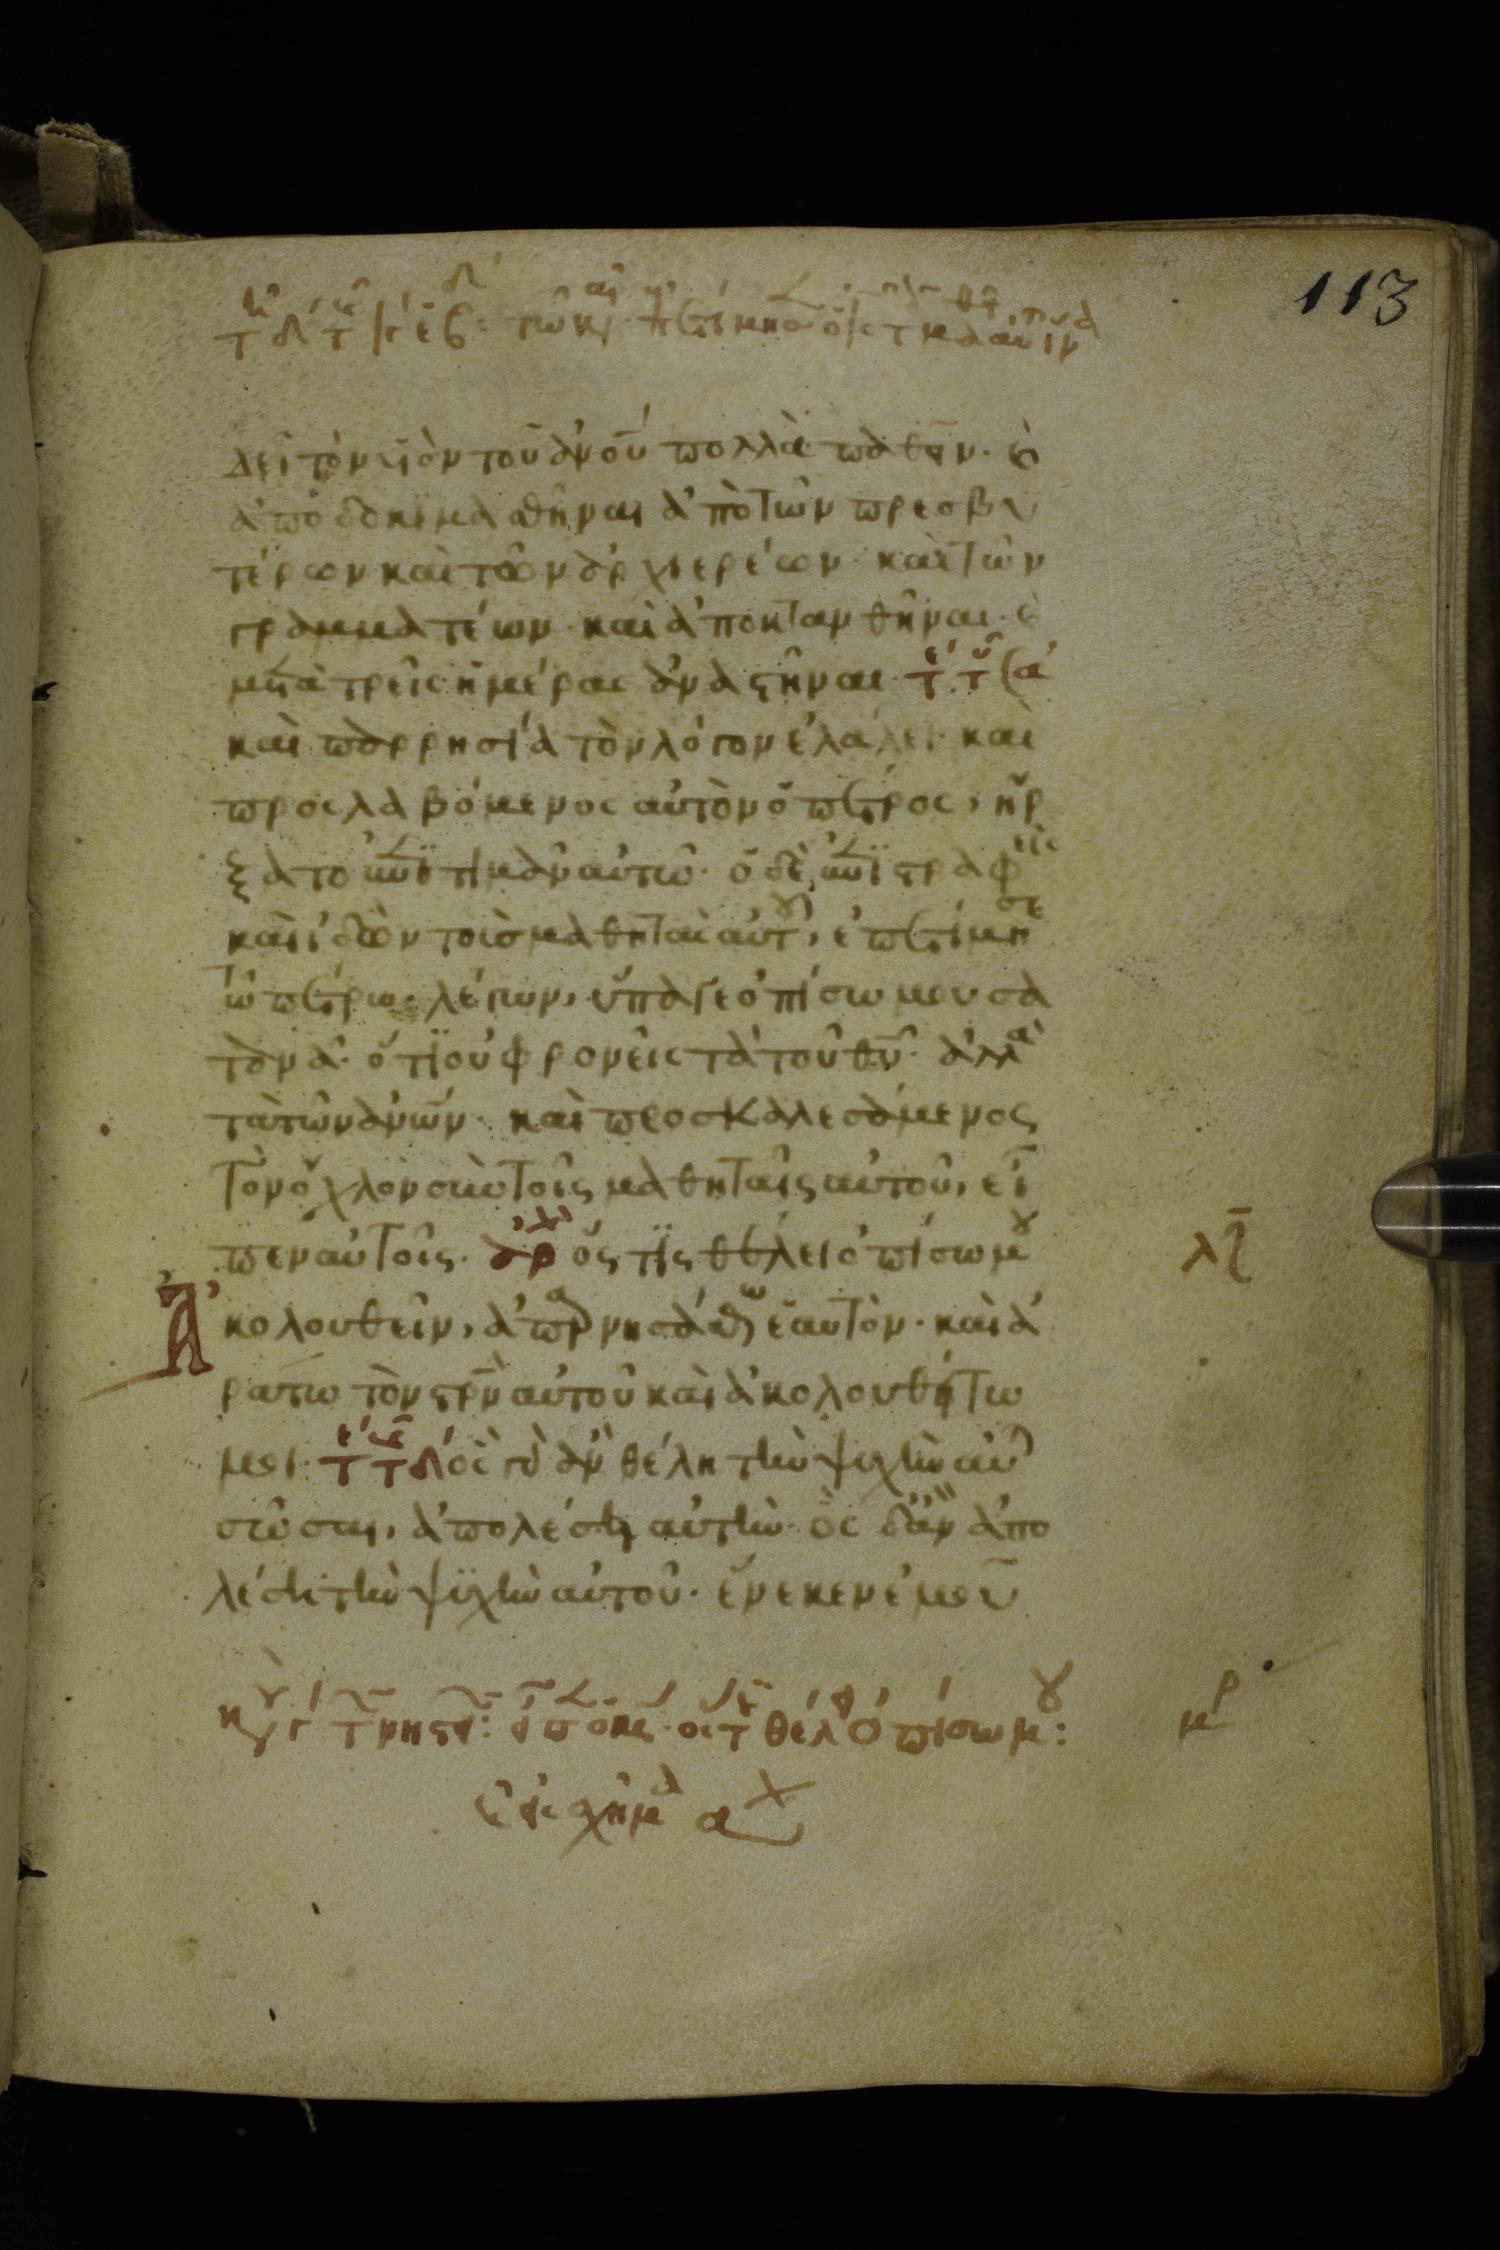 113
δεῖ τὸν υἱὸν τοῦ ἀνου πολλὰ παθεῖν· καὶ
ἀποδοκιμασθῆναι ἀπὸ τῶν πρεσβυ
τέρων καὶ τῶν ἀρχιερέων· καὶ τῶν
γραμματέων· καὶ ἀποκτανθῆναι· καὶ
μετὰ τρεῖς ἡμέρας ἀναστῆναι·
καὶ παρρησία τὸν λόγον ἐλάλει· καὶ
προσλαβόμενος αὐτὸν ὁ πέτρος, ἤρ
ξατο ἐπϊτιμᾶν αὐτῶ· ὁ δὲ ἐπϊστραφεὶς
καὶ ἰδὼν τοὶς μαθηταὶς αὐτοῦ, ἐπετίμησε
τῶ πέτρω· λέγων, ὕπαγε ὀπίσω μου σα
τανᾶ· ὅτϊ οὐ φρονεῖς τὰ τοῦ θυ· ἀλλὰ
τὰ τῶν ἀνων· καὶ προσκαλεσάμενος
τὸν ὄχλον σὺν τοῖς μαθηταῖς αὐτοῦ, εἶ
πεν αὐτοῖς· ἀρχ ὅς τϊς θέλει ὀπίσω μου
λζ
Ἀκολουθεῖν, ἀπαρνησάσθω ἑαυτὸν· καὶ ἀ
ράτω τὸν στρν αὐτοῦ καὶ ἀκολουθήτω
μοι· ὃς γὰρ ἂν θέλη τὴν ψυχὴν αὐτοῦ
σῶσαι, ἀπολέσει αὐτὴν· ὃς δ' ἂν ἀπο
λέσει τὴν ψϋχὴν αὐτοῦ· ἕνεκεν ἐμοῦ
θέλει ὀπίσω μου: